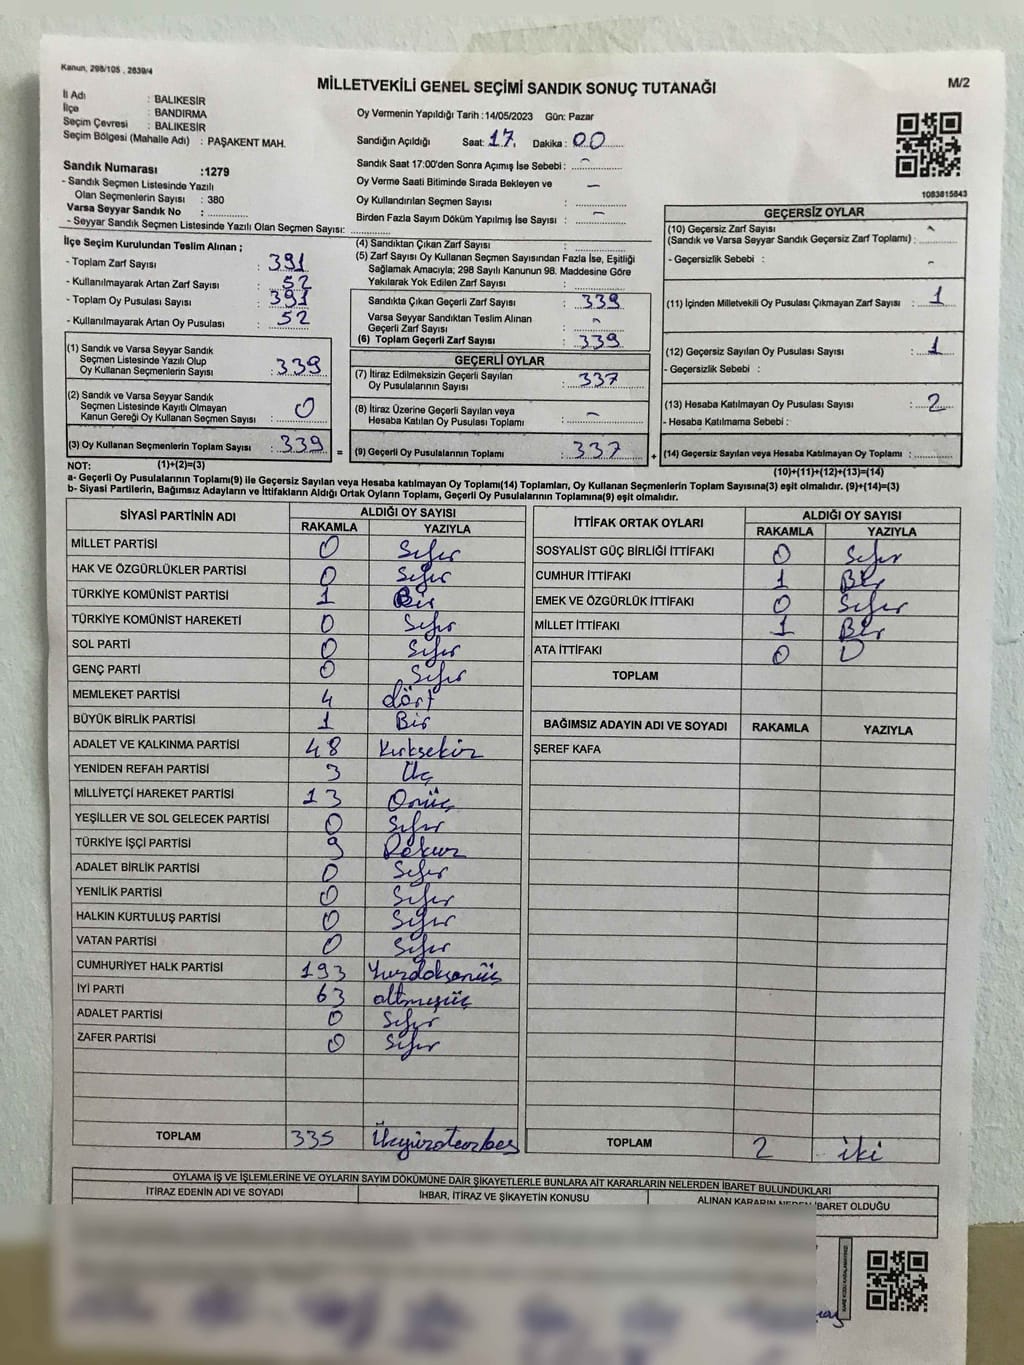 Kanun, 298/105 , 2839/4
MİLLETVEKİLİ GENEL SEÇİMİ SANDIK SONUÇ TUTANAĞI
M/2
İl Adı : BALIKESİR
İlçe : BANDIRMA
Seçim Çevresi : BALIKESİR
Seçim Bölgesi (Mahalle Adı) : PAŞAKENT MAH.
Oy Vermenin Yapıldığı Tarih :14/05/2023 Gün: Pazar
Sandığın Açıldığı Saat: 17. Dakika: 00
Sandık Saat 17:00'den Sonra Açımış İse Sebebi : -
Oy Verme Saati Bitiminde Sırada Bekleyen ve
Oy Kullandırılan Seçmen Sayısı : -
Birden Fazla Sayım Döküm Yapılmış İse Sayısı : -
1083815843
Sandık Numarası :1279
- Sandık Seçmen Listesinde Yazılı
Olan Seçmenlerin Sayısı : 380
Varsa Seyyar Sandık No :
- Seyyar Sandık Seçmen Listesinde Yazılı Olan Seçmen Sayısı:
İlçe Seçim Kurulundan Teslim Alınan ;
- Toplam Zarf Sayısı : 391
- Kullanılmayarak Artan Zarf Sayısı : 52
- Toplam Oy Pusulası Sayısı : 391
- Kullanılmayarak Artan Oy Pusulası : 52
(1) Sandık ve Varsa Seyyar Sandık
Seçmen Listesinde Yazılı Olup
Oy Kullanan Seçmenlerin Sayısı : 339
(2) Sandık ve Varsa Seyyar Sandık
Seçmen Listesinde Kayıtlı Olmayan
Kanun Gereği Oy Kullanan Seçmen Sayısı : 0
(3) Oy Kullanan Seçmenlerin Toplam Sayısı : 339 =
(4) Sandıktan Çıkan Zarf Sayısı :
(5) Zarf Sayısı Oy Kullanan Seçmen Sayısından Fazla İse, Eşitliği
Sağlamak Amacıyla; 298 Sayılı Kanunun 98. Maddesine Göre
Yakılarak Yok Edilen Zarf Sayısı :
Sandıkta Çıkan Geçerli Zarf Sayısı : 339
Varsa Seyyar Sandıktan Teslim Alınan
Geçerli Zarf Sayısı : -
(6) Toplam Geçerli Zarf Sayısı : 339
GEÇERLİ OYLAR
(7) İtiraz Edilmeksizin Geçerli Sayılan
Oy Pusulalarının Sayısı : 337
(8) İtiraz Üzerine Geçerli Sayılan veya
Hesaba Katılan Oy Pusulası Toplamı : -
(9) Geçerli Oy Pusulalarının Toplamı : 337 +
GEÇERSİZ OYLAR
(10) Geçersiz Zarf Sayısı
(Sandık ve Varsa Seyyar Sandık Geçersiz Zarf Toplamı) : -
- Geçersizlik Sebebi : -
(11) İçinden Milletvekili Oy Pusulası Çıkmayan Zarf Sayısı : 1
(12) Geçersiz Sayılan Oy Pusulası Sayısı : 1
- Geçersizlik Sebebi :
(13) Hesaba Katılmayan Oy Pusulası Sayısı : 2
- Hesaba Katılmama Sebebi :
(14) Geçersiz Sayılan veya Hesaba Katılmayan Oy Toplamı :
NOT: (1)+(2)=(3) (10)+(11)+(12)+(13)=(14)
a- Geçerli Oy Pusulalarının Toplamı(9) ile Geçersiz Sayılan veya Hesaba katılmayan Oy Toplamı(14) Toplamları, Oy Kullanan Seçmenlerin Toplam Sayısına(3) eşit olmalıdır. (9)+(14)=(3)
b- Siyasi Partilerin, Bağımsız Adayların ve İttifakların Aldığı Ortak Oyların Toplamı, Geçerli Oy Pusulalarının Toplamına(9) eşit olmalıdır.
SİYASİ PARTİNİN ADI ALDIĞI OY SAYISI
RAKAMLA YAZIYLA
MİLLET PARTİSİ 0 Sıfır
HAK VE ÖZGÜRLÜKLER PARTİSİ 0 Sıfır
TÜRKİYE KOMÜNİST PARTİSİ 1 Bir
TÜRKİYE KOMÜNİST HAREKETİ 0 Sıfır
SOL PARTİ 0 Sıfır
GENÇ PARTİ 0 Sıfır
MEMLEKET PARTİSİ 4 dört
BÜYÜK BİRLİK PARTİSİ 1 Bir
ADALET VE KALKINMA PARTİSİ 48 Kırksekiz
YENİDEN REFAH PARTİSİ 3 Üç
MİLLİYETÇİ HAREKET PARTİSİ 13 Onüç
YEŞİLLER VE SOL GELECEK PARTİSİ 0 Sıfır
TÜRKİYE İŞÇİ PARTİSİ 9 Dokuz
ADALET BİRLİK PARTİSİ 0 Sıfır
YENİLİK PARTİSİ 0 Sıfır
HALKIN KURTULUŞ PARTİSİ 0 Sıfır
VATAN PARTİSİ 0 Sıfır
CUMHURİYET HALK PARTİSİ 193 Yüzdoksanüç
İYİ PARTİ 63 altmışüç
ADALET PARTİSİ 0 Sıfır
ZAFER PARTİSİ 0 Sıfır
TOPLAM 335 Üçyüzotuzbeş
İTTİFAK ORTAK OYLARI ALDIĞI OY SAYISI
RAKAMLA YAZIYLA
SOSYALİST GÜÇ BİRLİĞİ İTTİFAKI 0 Sıfır
CUMHUR İTTİFAKI 1 Bir
EMEK VE ÖZGÜRLÜK İTTİFAKI 0 Sıfır
MİLLET İTTİFAKI 1 Bir
ATA İTTİFAKI 0 0
TOPLAM
BAĞIMSIZ ADAYIN ADI VE SOYADI RAKAMLA YAZIYLA
ŞEREF KAFA
TOPLAM 2 iki
OYLAMA İŞ VE İŞLEMLERİNE VE OYLARIN SAYIM DÖKÜMÜNE DAİR ŞİKAYETLERLE BUNLARA AİT KARARLARIN NELERDEN İBARET BULUNDUKLARI
İTİRAZ EDENİN ADI VE SOYADI İHBAR, İTİRAZ VE ŞİKAYETİN KONUSU ALINAN KARARIN NEDEN İBARET OLDUĞU